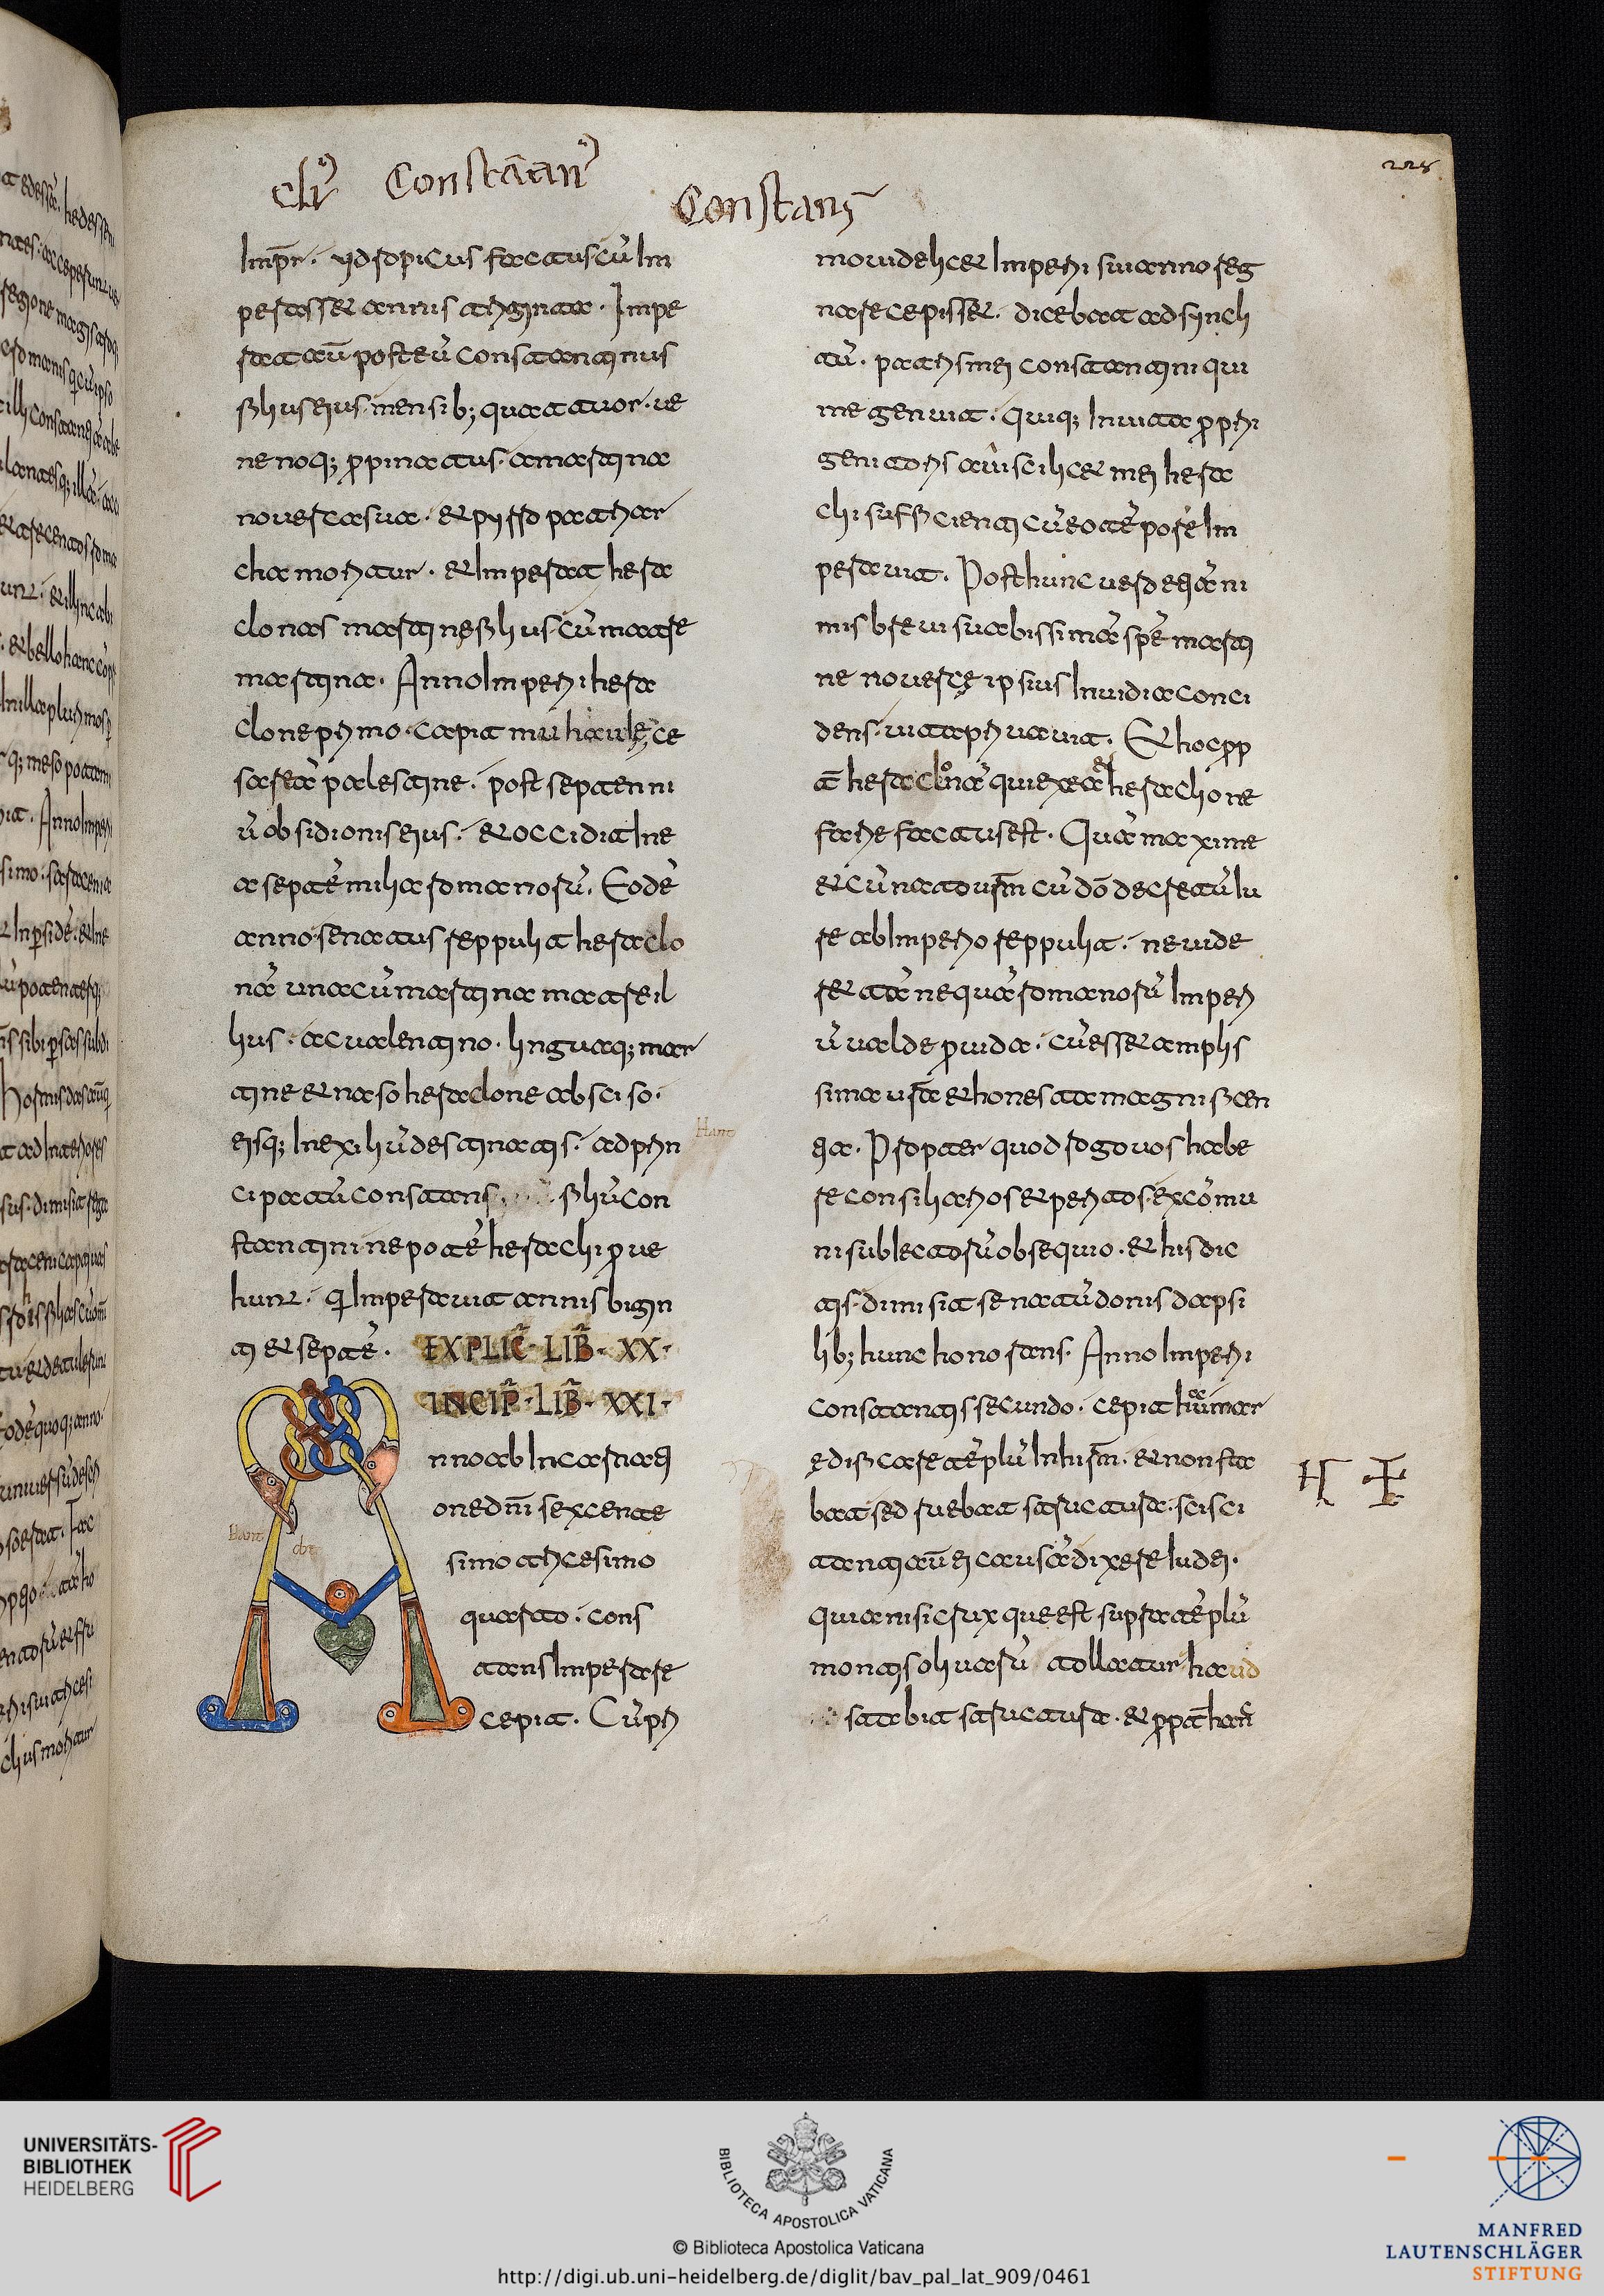 Constātinꝰ
Constans
Imp̄r. ydropicus factus cū Im
perasset annis triginta. Impe
rat aūt post eū Constantinus
filius eius mensib; quattuor. ue
nenoq; ppinatus a martina
nouerca sua. et pyrro patriar
cha moritur. et Imperat hera
clonas martinę filius cū matre
martina. Anno Imperii hera
clone primo. capit muhauleʒ ce
sareā palestine. post septenni
ū obsidionis eius. et occidit Ine
a septē milia romanorū. Eodē
anno senatus reppulit heraclo
nā una cū martina matre il
lius. ac ualentino. linguaq; mar
tine et naso heraclone absciso.
eisq; In exiliū destinatis. ad prin
cipatū constans filiū con
stantini nepotē heraclii proue
hunt. q Imperauit annis bigin
ti et septē. EXPLIC̄ · LIB̄ · XX ·
INCIP̄ · LIB̄ · XXI ·
Anno ab Incarnati
one dn̄i sexcente
simo tricesimo
quarto. cons
tans Imperare
cepit. Cū pri
mo uidelicet Imperii sui anno reg
nare cepisset. dicebat ad syncli
tū. patris mei constantini qui
me genuit. quiq; In uita pprii
genitoris aui scilicet mei hera
clii sufficienti cū eo tēpore Im
perauit. Post hunc uero etiā ni
mis breui suabissimā spē marti
ne nouercę ipsius Inuidia conci
dens. uita priuauit. Et hoc pp
t̄ heraclonā qui ex ea et heraclione
farie factus est. Quā maxime
et cū nato ur̄m cū dō decretū iu
re ab Imperio reppulit. ne uide
retur nequā romanorū Imperi
ū ualde prouida. cū esset amplis
sima ur̄a et honesta magnificen
tia. Propter quod rogo uos habe
re consiliarios et peritos ex cōmu
ni sublectorū obsequio. et his dic
tis dimisit senatū donis dapsi
lib; hunc honorans. Anno Imperii
constantis secundo. cepit huimar
ędificare tēplū In hir̄m. et non sta
bat sed ruebat structura. scisci
tanti aūt ei causā dixere Iudei.
quia nisi crux que est supra tēplū
montis oliuarū tollatur haud
stabit structura. et ppt̄ hanc
UNIVERSITÄTS-
BIBLIOTHEK
HEIDELBERG
BIBLIOTECA APOSTOLICA VATICANA
© Biblioteca Apostolica Vaticana
http://digi.ub.uni-heidelberg.de/diglit/bav_pal_lat_909/0461
MANFRED
LAUTENSCHLÄGER
STIFTUNG